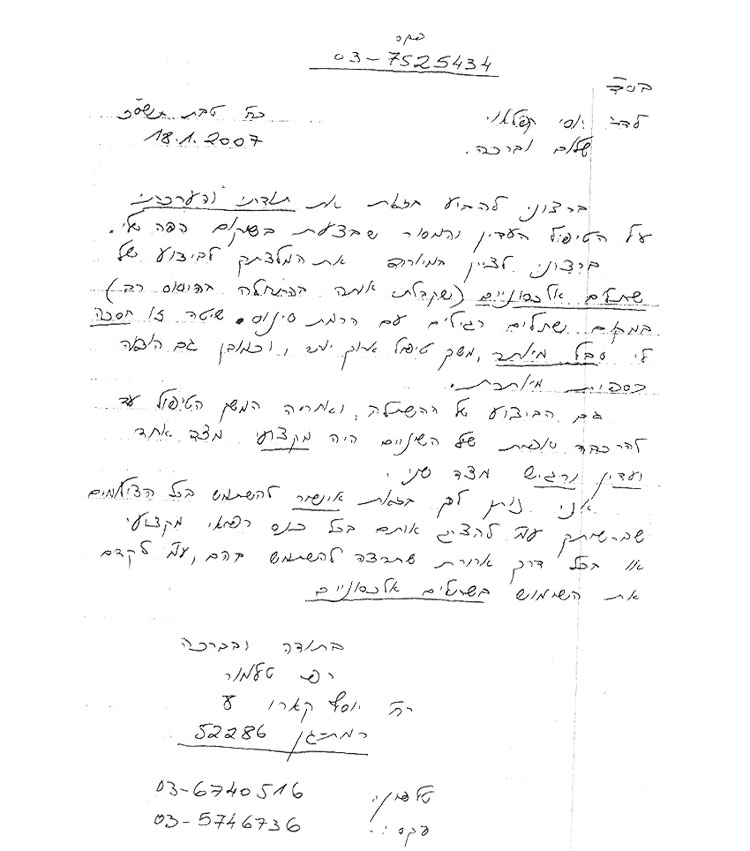 פקס
03-7525434
בס"ד
כח טבת תשס"ז
לדר יוסי
18.1.2007
שלום וברכה.
ברצוני להביע בזאת את תודתי והערכתי
על הטיפול העדין והמסור שבצעת בשיקום הפה שלי.
ברצוני לציין במיוחד את המלצתך לביצוע של
שתלים אלכסוניים (שקבלתי אותה בהתחלה בהיסוס רב)
במקום שתלים רגילים עם הרמת סינוס. שיטה זו חסכה
לי סבל מיותר, משך טיפול ארוך יותר, וכמובן גם הוצאה
כספית מיותרת.
גם הביצוע של ההשתלה, ואחריה המשך הטיפול עד
להרכבה סופית של השיניים היה מקצועי מצד אחד
ועדין ורגיש מצד שני.
אני נותן לך בזאת אישור להשתמש בכל הצילומים
שברשותך ע"מ להציג אותם בכל כנס רפואי מקצועי
או בכל דרך אחרת שתרצה להשתמש בהם, ע"מ לקדם
את השימוש בשתלים אלכסוניים
בתודה ובברכה
רפי טלמור
רח יוסף קארו
רמת-גן 52286
טלפון: 03-6740516
פקס: 03-5746736